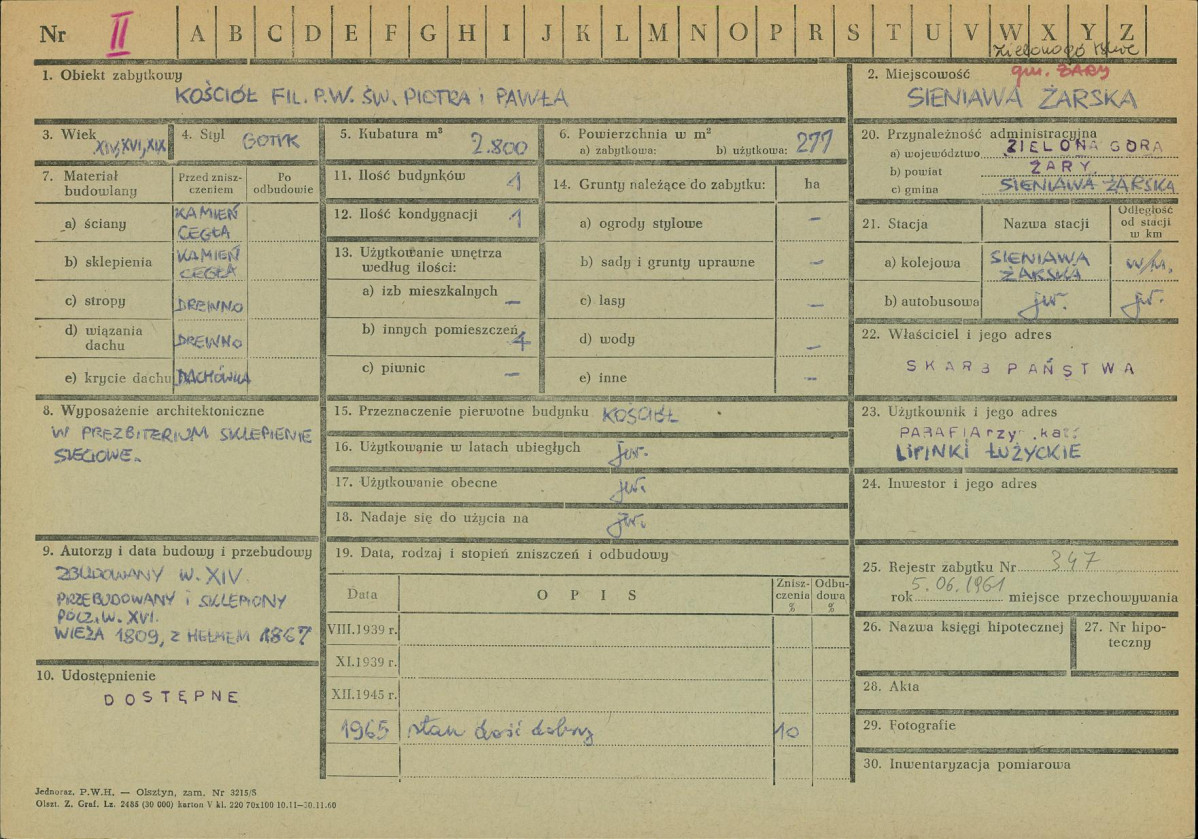 Nr II A B C D E F G H I J K L M N O P R S T U V W X Y Z
1. Obiekt zabytkowy
KOŚCIÓŁ FIL. P.W. ŚW. PIOTRA i PAWŁA
2. Miejscowość
gm. ŻARY
SIENIAWA ŻARSKA
3. Wiek
XIV, XVI, XIX
4. Styl
GOTYK
5. Kubatura m³
2.800
6. Powierzchnia w m²
a) zabytkowa: b) użytkowa: 277
20. Przynależność administracyjna
a) województwo ZIELONA GÓRA
b) powiat ŻARY
c) gmina SIENIAWA ŻARSKA
7. Materiał budowlany
Przed zniszczeniem
Po odbudowie
a) ściany KAMIEŃ CEGŁA
b) sklepienia KAMIEŃ CEGŁA
c) stropy DREWNO
d) wiązania dachu DREWNO
e) krycie dachu DACHÓWKA
11. Ilość budynków 1
12. Ilość kondygnacji 1
13. Użytkowanie wnętrza
według ilości:
a) izb mieszkalnych –
b) innych pomieszczeń 4
c) piwnic –
14. Grunty należące do zabytku: ha
a) ogrody stylowe –
b) sady i grunty uprawne –
c) lasy –
d) wody –
e) inne –
21. Stacja
Nazwa stacji
Odległość
od stacji
w km
a) kolejowa SIENIAWA ŻARSKA w/m.
b) autobusowa jw. jw.
22. Właściciel i jego adres
SKARB PAŃSTWA
8. Wyposażenie architektoniczne
W PREZBITERIUM SKLEPIENIE
SIECIOWE.
15. Przeznaczenie pierwotne budynku KOŚCIÓŁ
16. Użytkowanie w latach ubiegłych jw.
17. Użytkowanie obecne jw.
18. Nadaje się do użycia na jw.
23. Użytkownik i jego adres
PARAFIA rzy. kat.
LIPINKI ŁUŻYCKIE
24. Inwestor i jego adres
9. Autorzy i data budowy i przebudowy
ZBUDOWANY W. XIV.
PRZEBUDOWANY i SKLEPIONY
POCZ. W. XVI.
WIEŻA 1809, Z HEŁMEM 1867
10. Udostępnienie
DOSTĘPNE
19. Data, rodzaj i stopień zniszczeń i odbudowy
Data
O P I S
Zniszczenia %
Odbudowa %
VIII.1939 r.
XI.1939 r.
XII.1945 r.
1965 stan dość dobry 10
25. Rejestr zabytku Nr 347
rok 5.06.1961 miejsce przechowywania
26. Nazwa księgi hipotecznej
27. Nr hipoteczny
28. Akta
29. Fotografie
30. Inwentaryzacja pomiarowa
Jednoraz. P.W.H. — Olsztyn, zam. Nr 3215/S
Olszt. Z. Graf. Lz. 2485 (30 000) karton V kl. 220 70x100 10.11–30.11.60